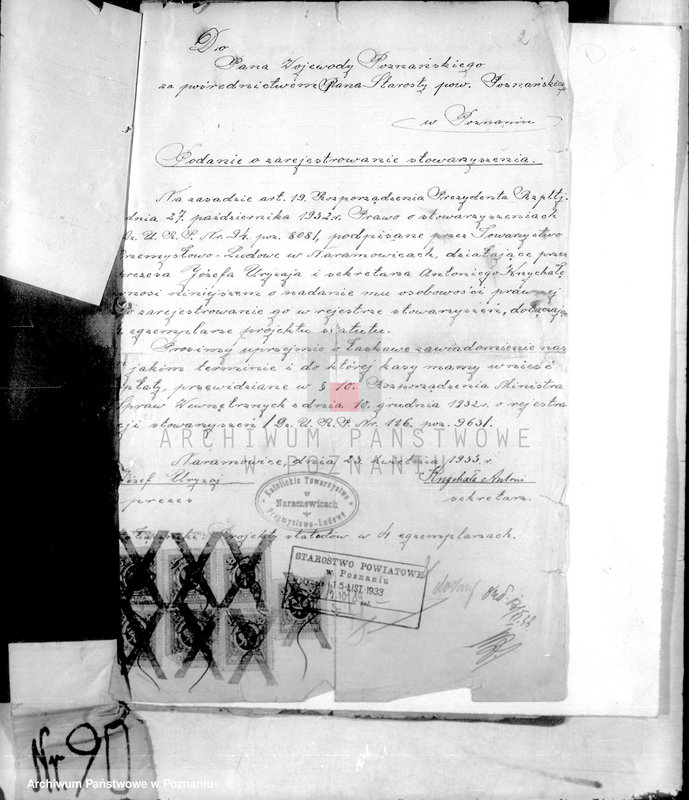 2
Do
Pana Wojewody Poznańskiego
za pośrednictwem Pana Starosty pow. Poznańskiego
w Poznaniu
Podanie o zarejestrowanie stowarzyszenia.
Na zasadzie art. 19. Rozporządzenia Prezydenta Rzpltj.
dnia 27. października 1932 r. Prawo o stowarzyszeniach
Dz. U. R. P. Nr. 94. poz. 808/, podpisane przez Towarzystwo
Przemysłowo-Ludowe w Naramowicach, działające przez
prezesa Józefa Uryzaja i sekretarza Antoniego Knychałę
wnosi niniejszem o nadanie mu osobowości prawnej
o zarejestrowanie go w rejestrze stowarzyszeń, dołączając
egzemplarze projektu statutu.
Prosimy uprzejmie o łaskawe zawiadomienie nas
jakim terminie i do której kasy mamy wnieść
opłaty, przewidziane w § 10. Rozporządzenia Ministra
Spraw Wewnętrznych z dnia 10. grudnia 1932. o rejestra
cji stowarzyszeń / Dz. U. R. P. Nr. 126 poz. 963/.
ARCHIWUM PAŃSTWOWE
W POZNANIU
Naramowice, dnia 23 kwietnia 1933. r.
Józef Uryzaj
Knychała Antoni
prezes
sekretarz.
Katolickie Towarzystwo
w
Naramowicach
Przemysłowo-Ludowe
Załączniki: Projekty statutów w 4 egzemplarzach.
STAROSTWO POWIATOWE
w Poznaniu
15 LIST. 1933
Nr 90
Archiwum Państwowe w Poznaniu